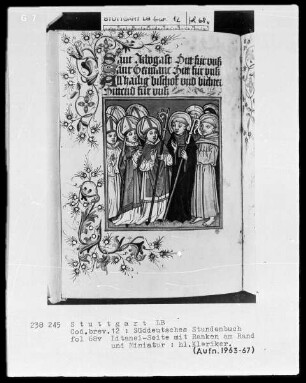 STUTTGART LB
12
68v
Sant Adogast Bitt fur unß
Sant German Bitt fur unß
All hailig bischof und bichter
Bittend fur unß
238 245 Stuttgart LB
Cod.brev.12 : Süddeutsches Stundenbuch
fol 68v Litanei-Seite mit Ranken am Rand
und Miniatur : hl.Kleriker.
(Aufn.1963-67)